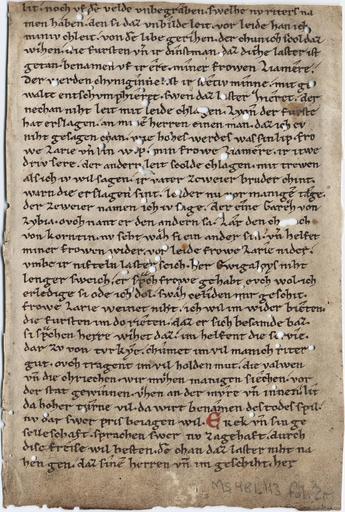 lit. noch vf dē velde vnbegraben. swelhe nv riters na
men haben. den si daz vnbilde leit. vor leide han ich
minīv chleit. von dē libe gerihen. der chunich scol daz
wihen. die fursten vn̄ ir dinstman. daz dithe laster ist
getan. benamen vf ir ere. miner frowen Liamere.
der werden chvniginne. ist ir
walte entschvmphiert. swen daz laster niert. der
nechan niht leit mit leide chlagen. der furste
hat erslagen. an mi me herren einen man. daz ich ev
niht gesagen chan. wie hohes werdes was
we Larie vn̄ min frowe Liamere. ir itwe
driv sere. der andern leit scolde chlagen. mit trewen
als ich iv wil sagen. ir vater zoweier bruder chint.
warn die erslagen sint. leider nu mer manigē tage.
der zweier namen ich iv sage. der eine Garez von
Lybia. ovch nant er den andern sa.
von korntin. nv seht wah si ein ander sin. vn̄ helfet
miner frowen wider. vor leide frowe Larie nider.
vmbe ir nifteln laster seich. her Gwigaloys niht
lenger sweich. er sp̄ch frowe gehabt evch wol. ich
erledige si ode ich dol. swaz
frowe Larie weinet niht. ich wil im wider bieten.
die fursten im do rieten. daz er sich besande baz.
si sp̄chen herre wizzet daz. im helfent die sarie.
dar zv von tvrkye. chumet im vil manich riter
gut. ovch tragent im vil holden mut. die valwen
vn̄ die chriechen. wir muzen manigen siechen. vor
der stat gewinnen. vzen an der myre vn̄ innen. lit
da hoher turne vil. da wirt benamen des todes spil.
nv dar swer pris beiagen wil. Erek vn̄ sin ge
selleschaft. sprachen swer nv zagehaft. durch
dise freise wil besten. de chan daz laster niht na
hen gen. daz sinē herren vn̄ im geschiht. her
MS 481,113 fol. 2r